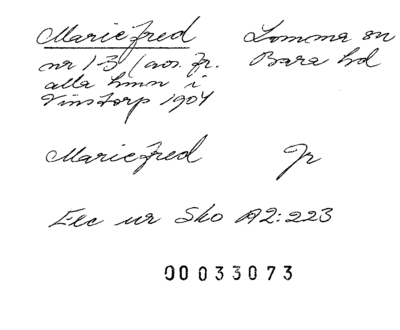 Mariefred Lomma sn
nr 1-3 (avs. fr. Bara hd
alla hmn i
Vinstorp 1904
Mariefred Jr
Exc ur Sko A2:223
00033073